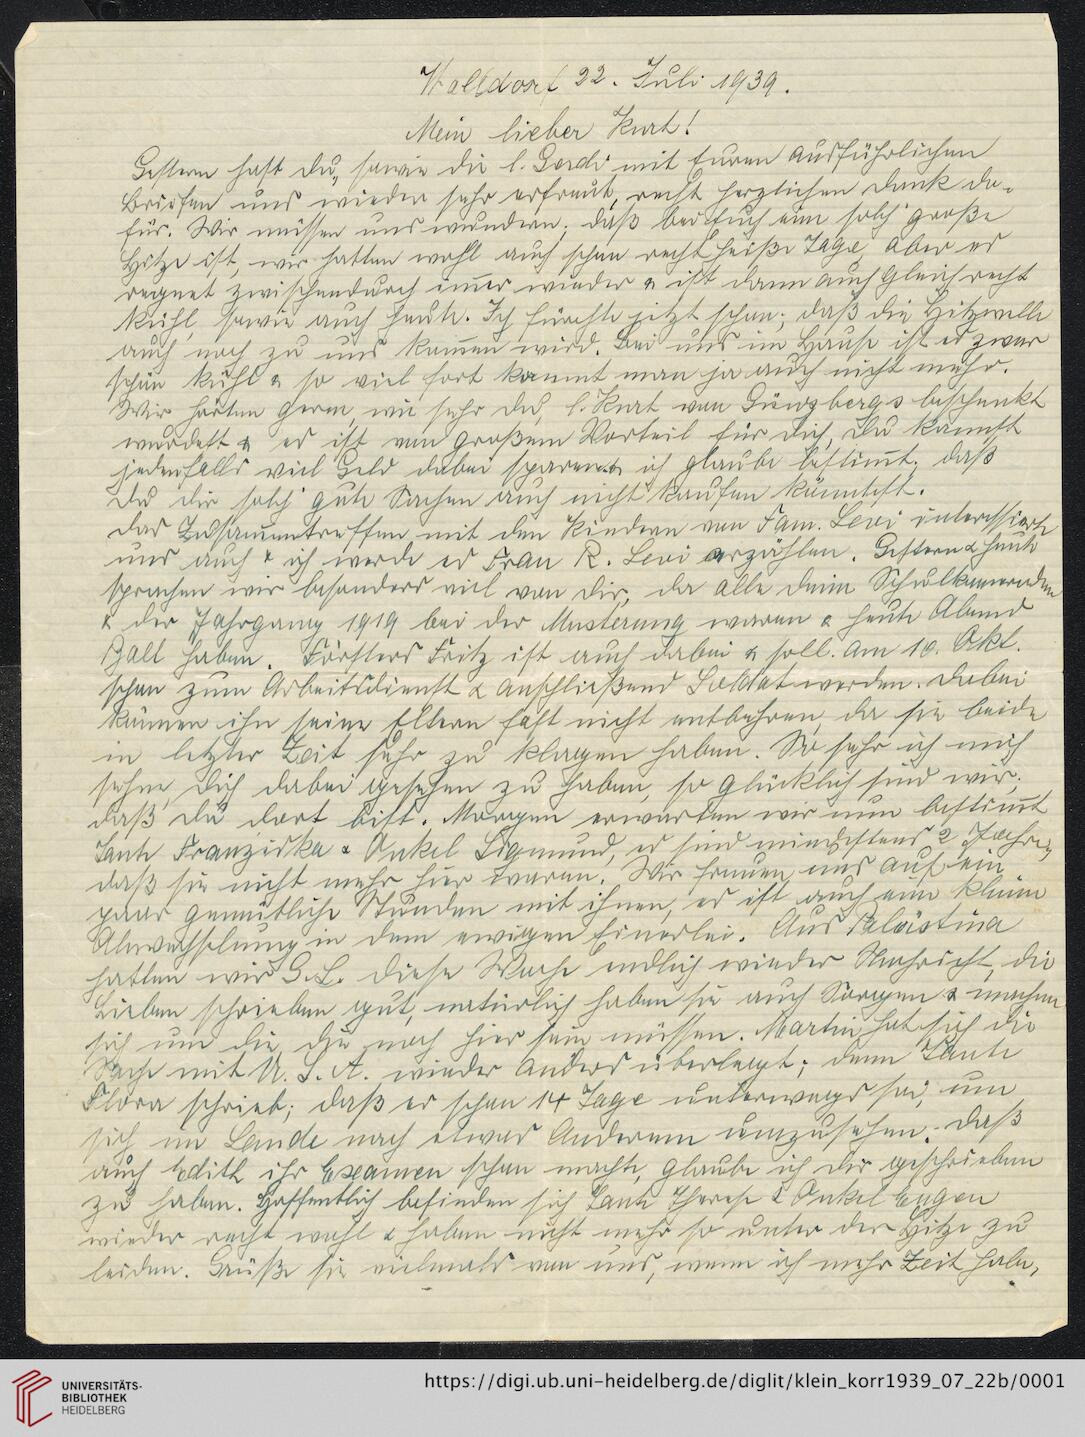 Walldorf 22. Juli 1939.
Mein lieber Kurt!
Gestern hast du, sowie die l. Gerdi mit Euren ausführlichen
Briefen uns wieder sehr erfreut, recht herzlichen Dank da-
für. Wir müssen uns wundern, daß bei Euch eine solch' große
Hitze ist, wir hatten wohl auch schon recht heiße Tage aber es
regnet zwischendurch immer wieder & ist dann auch gleich recht
kühl, sowie auch heute. Ich fürchte jetzt schon, daß die Hitzwelle
auch noch zu uns kommen wird. Bei uns im Hause ist es zwar
schön kühl & so viel fort kommt man ja auch nicht mehr.
Wir hörten gern, wie sehr du, l. Kurt von Günzbergs beschenkt
wurdest & es ist von großem Vorteil für dich, du kannst
jedenfalls viel Geld dabei sparen & ich glaube bestimmt, daß
du dir solch' gute Sachen auch nicht kaufen könntest.
Das Zusammentreffen mit den Kindern von Fam. Levi interessierte
uns auch & ich werde es Frau R. Levi erzählen. Gestern & heute
sprachen wir besonders viel von dir, da alle deine Schulkameraden
& der Jahrgang 1919 bei der Musterung waren & heute Abend
Ball haben. Försters Fritz ist auch dabei & soll am 10. Okt.
schon zum Arbeitsdienst & anschließend Soldat werden. Dabei
können ihn seine Eltern fast nicht entbehren, da sie beide
in letzter Zeit sehr zu klagen haben. So sehr ich mich
sehne, dich dabei gesehen zu haben, so glücklich sind wir,
daß du dort bist. Morgen erwarten wir nun bestimmt
Tante Franziska & Onkel Sigmund, es sind mindestens 2 Jahre,
daß sie nicht mehr hier waren. Wir freuen uns auf ein
paar gemütliche Stunden mit ihnen, es ist auch eine kleine
Abwechslung in dem ewigen Einerlei. Aus Palästina
hatten wir G. L. diese Woche endlich wieder Nachricht, die
Lieben schrieben gut, natürlich haben sie auch Sorgen & machen
sich um die, die noch hier sein müssen. Martin hat sich die
Sache mit U. S. A. wieder anders überlegt; denn Tante
Flora schrieb, daß er schon 14 Tage unterwegs sei, um
sich im Lande nach etwas Anderem umzusehen. Daß
auch Edith ihr Examen schon machte, glaube ich dir geschrieben
zu haben. Hoffentlich befinden sich Tante Therese & Onkel Eugen
wieder recht wohl & haben nicht mehr so unter der Hitze zu
leiden. Grüße sie vielmals von uns, wenn ich mehr Zeit habe,
UNIVERSITÄTS-
BIBLIOTHEK
HEIDELBERG
https://digi.ub.uni-heidelberg.de/diglit/klein_korr1939_07_22b/0001